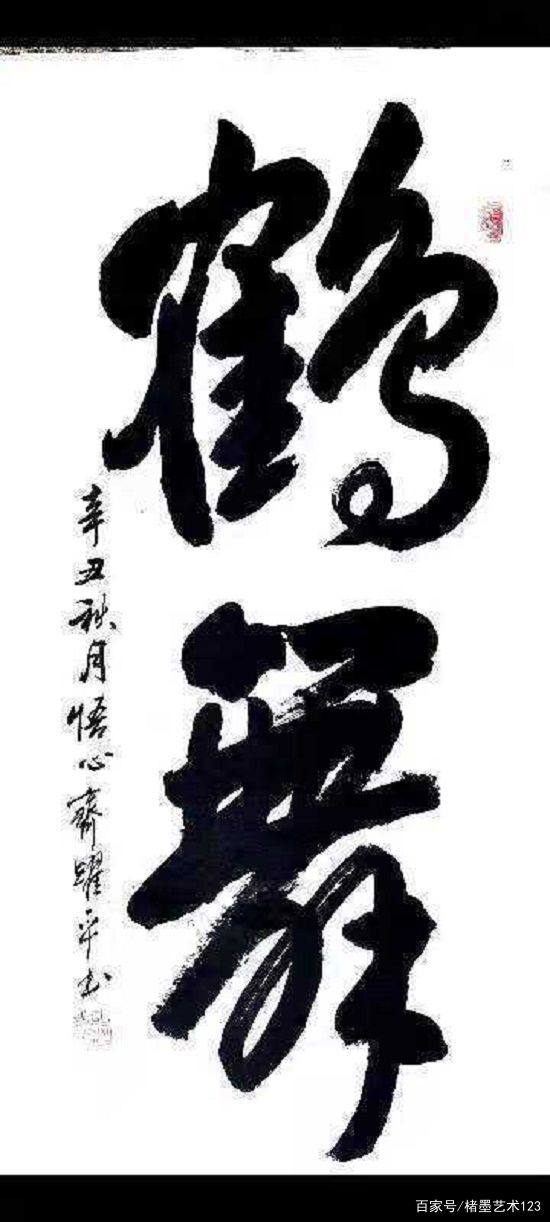 鶴舞
辛丑秋月悟心齋躍平书
百家号/楮墨艺术123